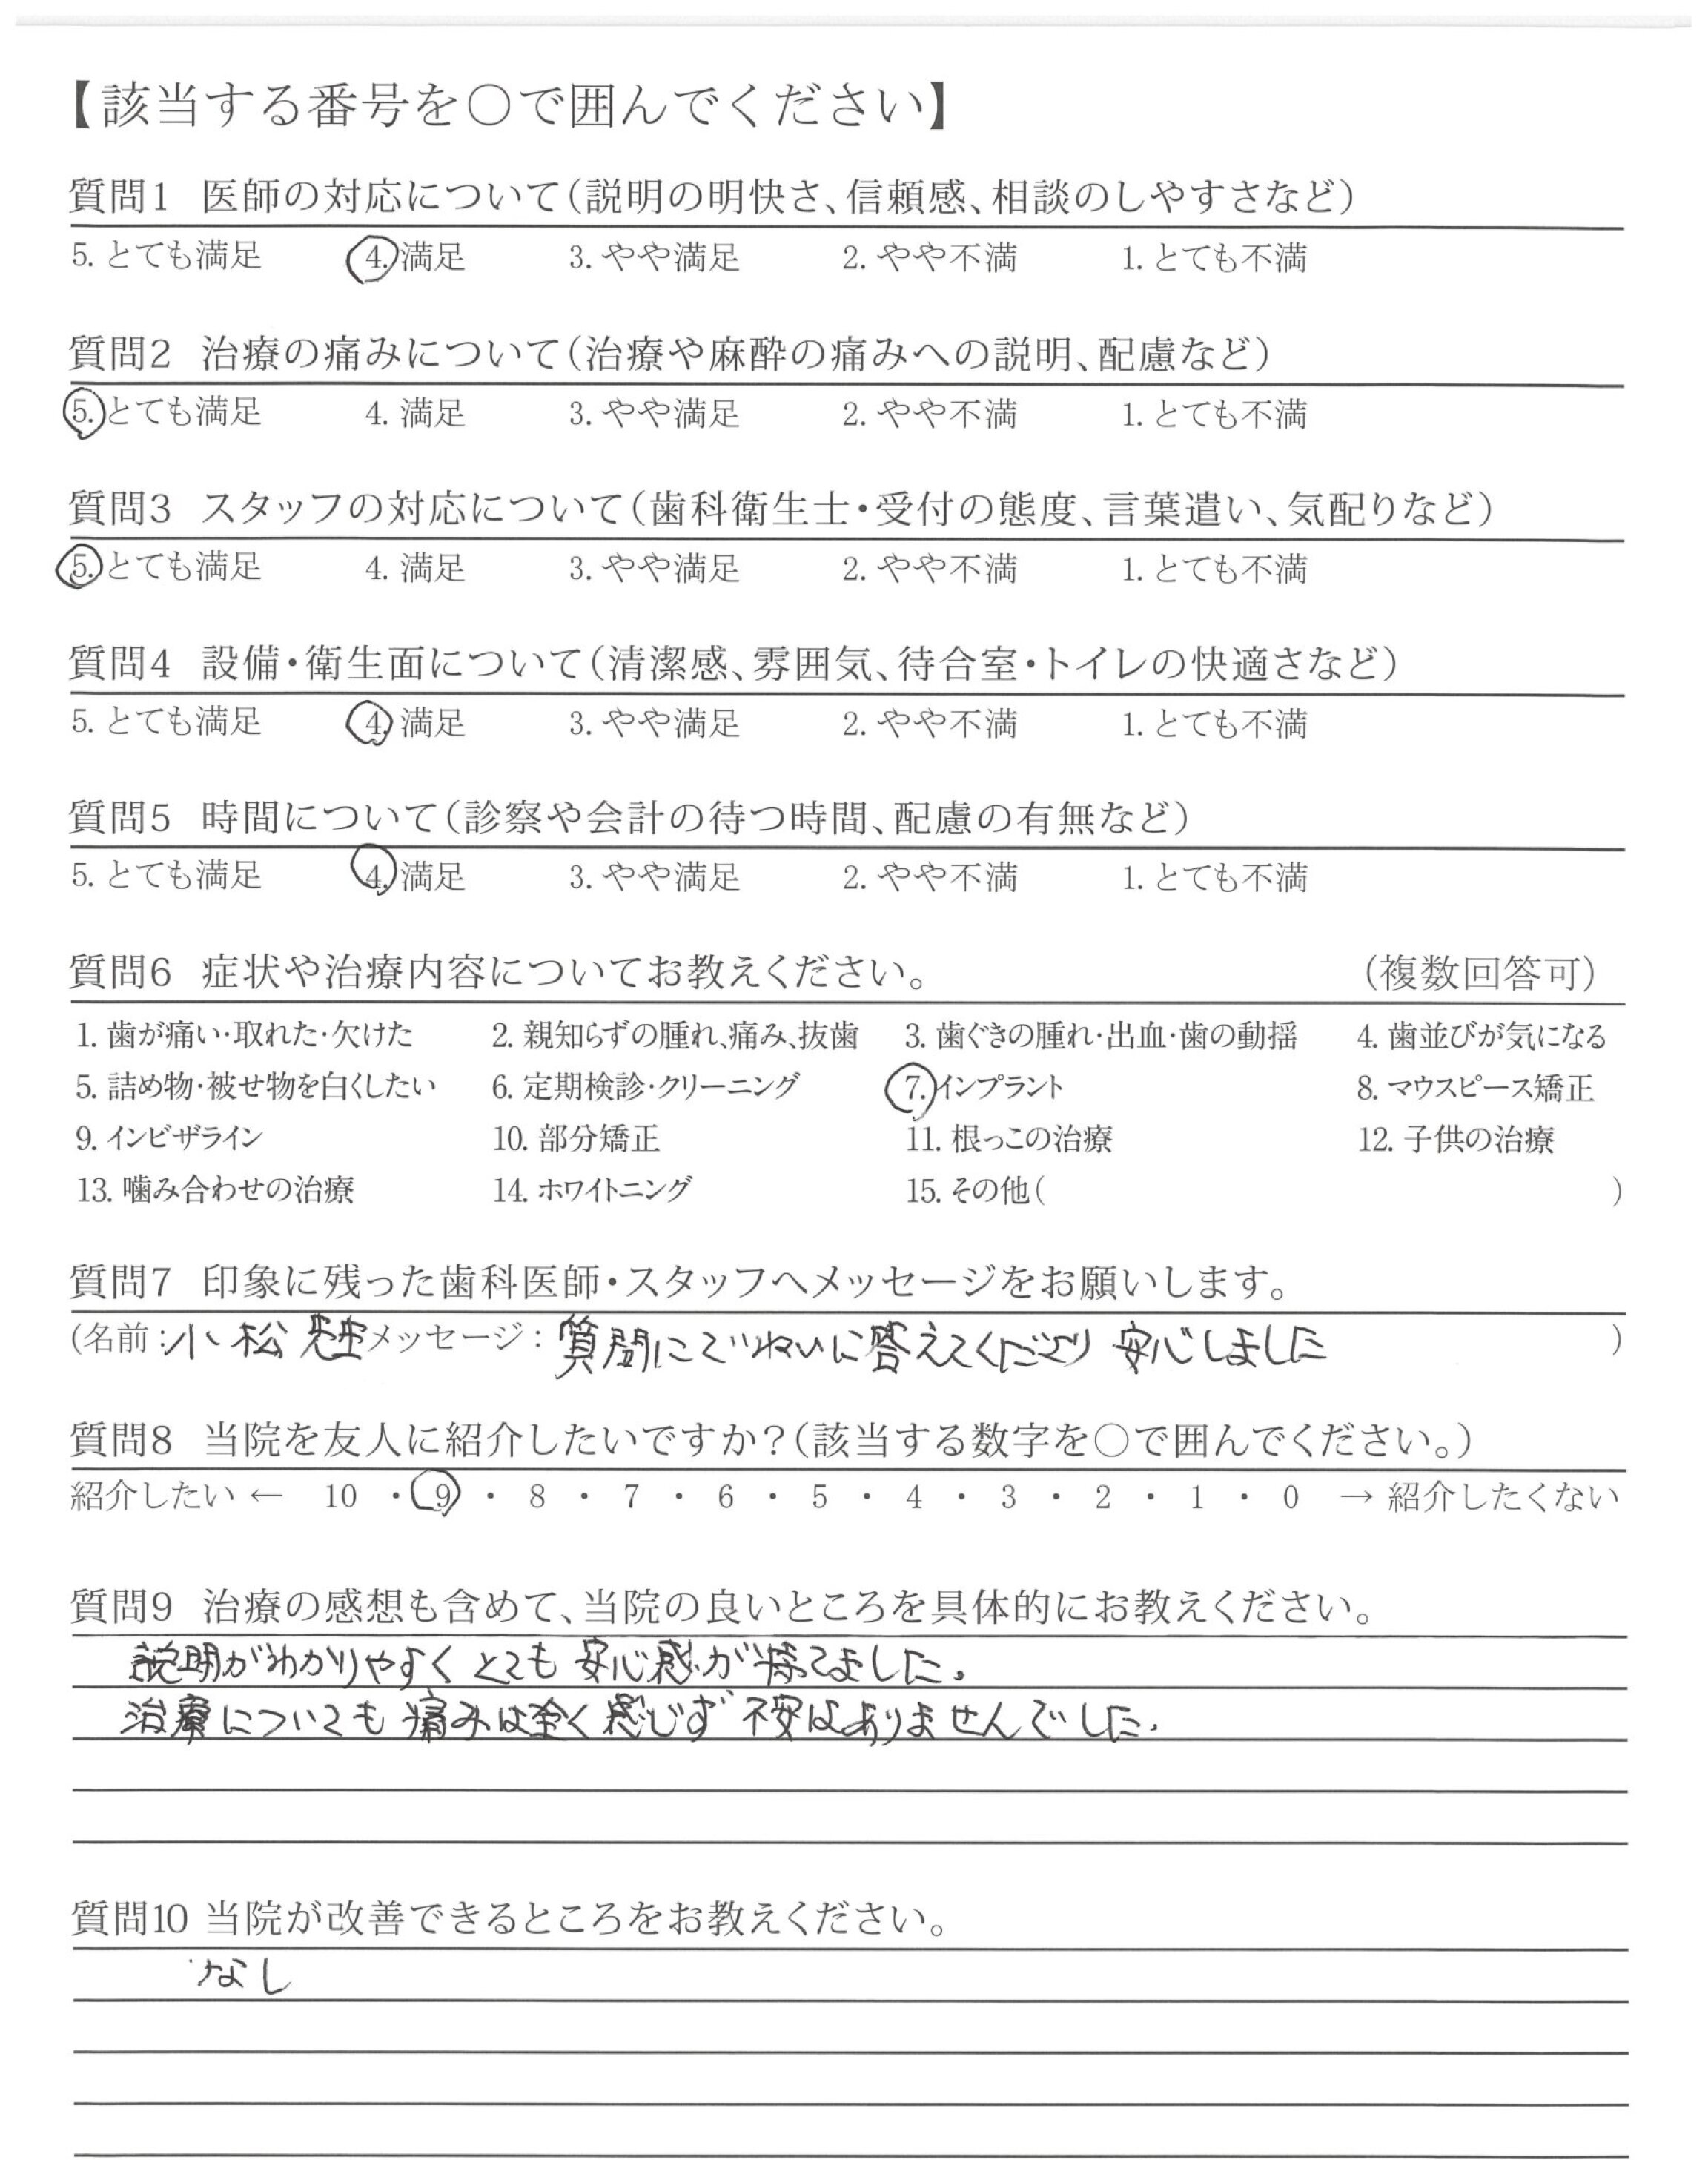 【該当する番号を○で囲んでください】
質問1 医師の対応について(説明の明快さ、信頼感、相談のしやすさなど)
5. とても満足 4. 満足 3. やや満足 2. やや不満 1. とても不満
質問2 治療の痛みについて(治療や麻酔の痛みへの説明、配慮など)
5. とても満足 4. 満足 3. やや満足 2. やや不満 1. とても不満
質問3 スタッフの対応について(歯科衛生士・受付の態度、言葉遣い、気配りなど)
5. とても満足 4. 満足 3. やや満足 2. やや不満 1. とても不満
質問4 設備・衛生面について(清潔感、雰囲気、待合室・トイレの快適さなど)
5. とても満足 4. 満足 3. やや満足 2. やや不満 1. とても不満
質問5 時間について(診察や会計の待つ時間、配慮の有無など)
5. とても満足 4. 満足 3. やや満足 2. やや不満 1. とても不満
質問6 症状や治療内容についてお教えください。 (複数回答可)
1. 歯が痛い・取れた・欠けた 2. 親知らずの腫れ、痛み、抜歯 3. 歯ぐきの腫れ・出血・歯の動揺 4. 歯並びが気になる
5. 詰め物・被せ物を白くしたい 6. 定期検診・クリーニング 7. インプラント 8. マウスピース矯正
9. インビザライン 10. 部分矯正 11. 根っこの治療 12. 子供の治療
13. 噛み合わせの治療 14. ホワイトニング 15. その他( )
質問7 印象に残った歯科医師・スタッフへメッセージをお願いします。
(名前:小松先生 メッセージ: 質問にていねいに答えてくださり 安心しました )
質問8 当院を友人に紹介したいですか?(該当する数字を○で囲んでください。)
紹介したい ← 10 ・ 9 ・ 8 ・ 7 ・ 6 ・ 5 ・ 4 ・ 3 ・ 2 ・ 1 ・ 0 → 紹介したくない
質問9 治療の感想も含めて、当院の良いところを具体的にお教えください。
説明がわかりやすく とても 安心感が持てました。
治療についても 痛みは全く感じず 不安はありませんでした。
質問10 当院が改善できるところをお教えください。
なし